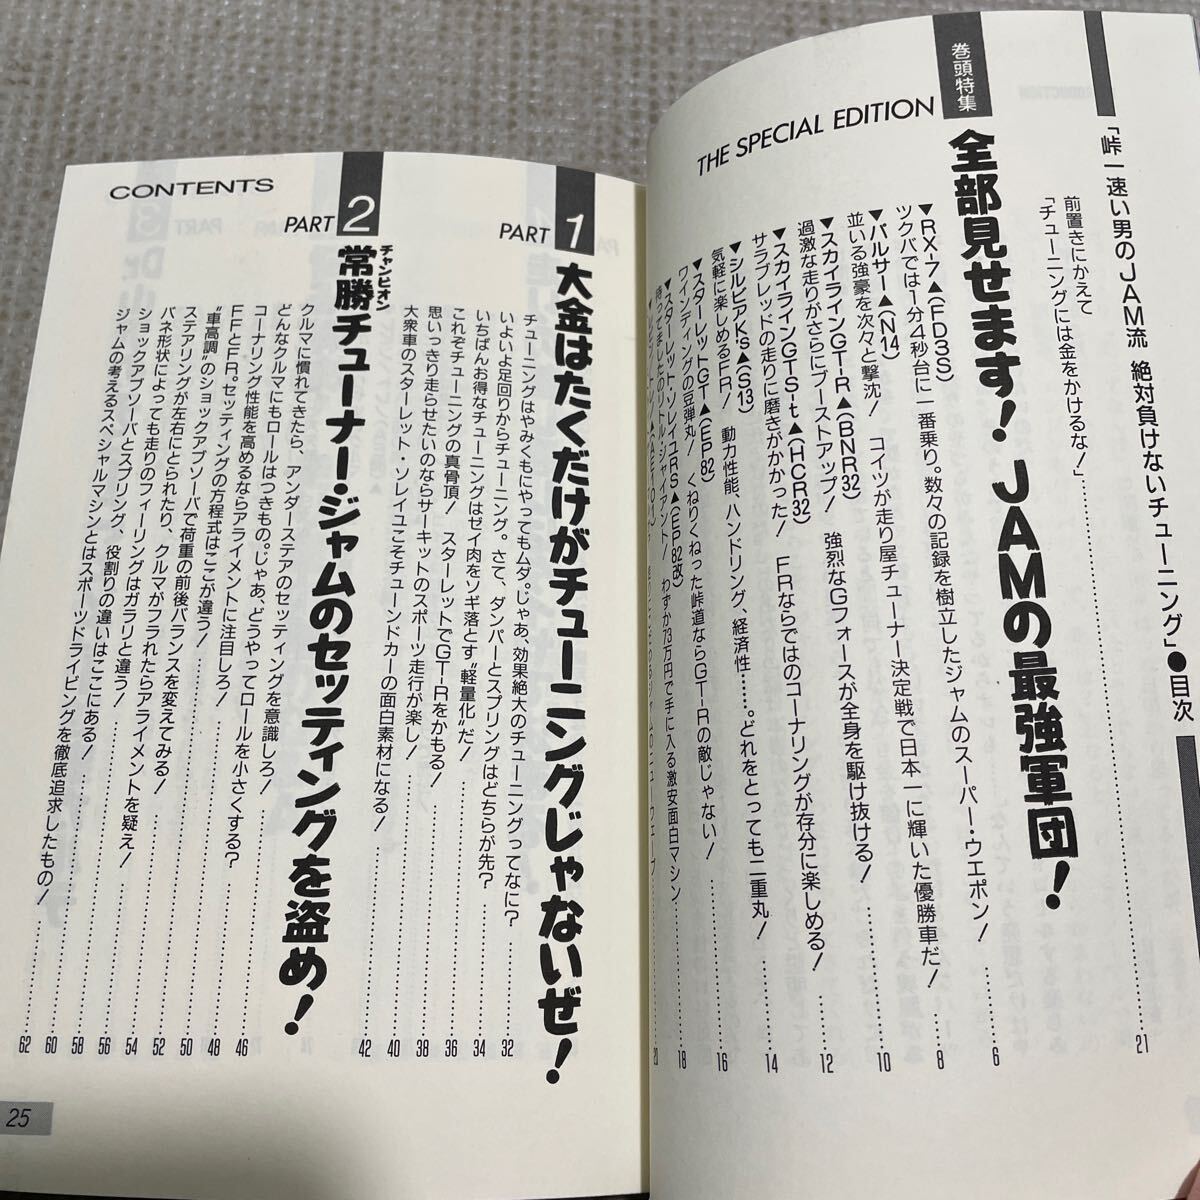 「峠一速い男のJAM流 絶対負けないチューニング」●目次
前置きにかえて
「チューニングには金をかけるな!」 21
巻頭特集
THE SPECIAL EDITION
全部見せます! JAMの最強軍団!
▼RX-7▲(FD3S)
ツクバでは1分4秒台に一番乗り。数々の記録を樹立したジャムのスーパー・ウエポン! 6
▼パルサー▲(N14)
並いる強豪を次々と撃沈! コイツが走り屋チューナー決定戦で日本一に輝いた優勝車だ! 8
▼スカイラインGT-R▲(BNR32)
過激な走りがさらにブーストアップ! 強烈なGフォースが全身を駆け抜ける! 10
▼スカイラインGTS-t▲(HCR32)
サラブレッドの走りに磨きがかかった! FRならではのコーナリングが存分に楽しめる! 12
▼シルビアK's▲(S13)
気軽に楽しめるFR! 動力性能、ハンドリング、経済性……。どれをとっても二重丸! 14
▼スターレットGT▲(EP82)
ワインディングの豆弾丸! くねりくねった峠道ならGT-Rの敵じゃない! 16
▼スターレット・ソレイユRS▲(EP82改)
リトルジャイアント! わずか73万円で手に入る激安面白マシン 18
20
CONTENTS
PART 1
大金はたくだけがチューニングじゃないぜ!
チューニングはやみくもにやってもムダ。じゃあ、効果絶大のチューニングってなに? 32
いよいよ足回りからチューニング。さて、ダンパーとスプリングはどちらが先? 34
いちばんお得なチューニングはゼイ肉をソギ落とす“軽量化”だ! 36
これぞチューニングの真骨頂! スターレットでGT-Rをかもる! 38
思いっきり走らせたいのならサーキットのスポーツ走行が楽し! 40
大衆車のスターレット・ソレイユこそチューンドカーの面白素材になる! 42
PART 2
常勝チューナー・ジャムのセッティングを盗め!
チャンピオン
クルマに慣れてきたら、アンダーステアのセッティングを意識しろ! 46
どんなクルマにもロールはつきもの。じゃあ、どうやってロールを小さくする? 48
コーナリング性能を高めるならアライメントに注目しろ! 50
FFとFR。セッティングの方程式はここが違う! 52
“車高調”のショックアブソーバで荷重の前後バランスを変えてみる! 54
ステアリングが左右にとられたり、クルマがフラれたらアライメントを疑え! 56
バネ形状によっても走りのフィーリングはガラリと違う! 58
ショックアブソーバとスプリング、役割りの違いはここにある! 60
ジャムの考えるスペシャルマシンとはスポーツドライビングを徹底追求したもの! 62
25